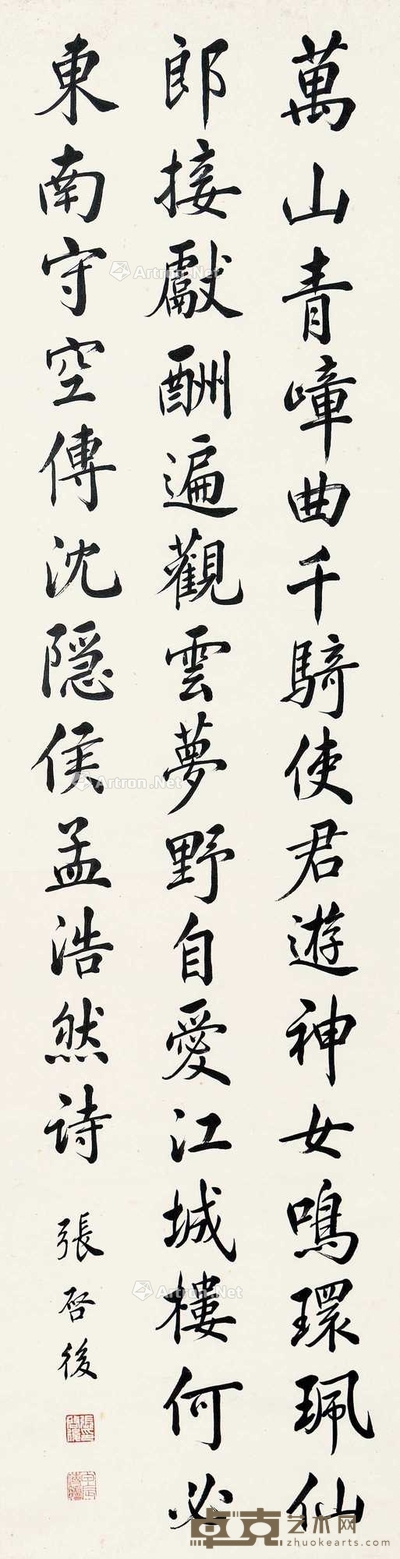 萬山青嶂曲千騎使君遊神女鳴環珮仙
郎接獻酬遍觀雲夢野自愛江城樓何必
東南守空傳沈隱侯孟浩然詩
張啓後
Artron.Net
Artron.Net
Artron.Net
Artron.Net
卓克艺术网
zhuokearts.com